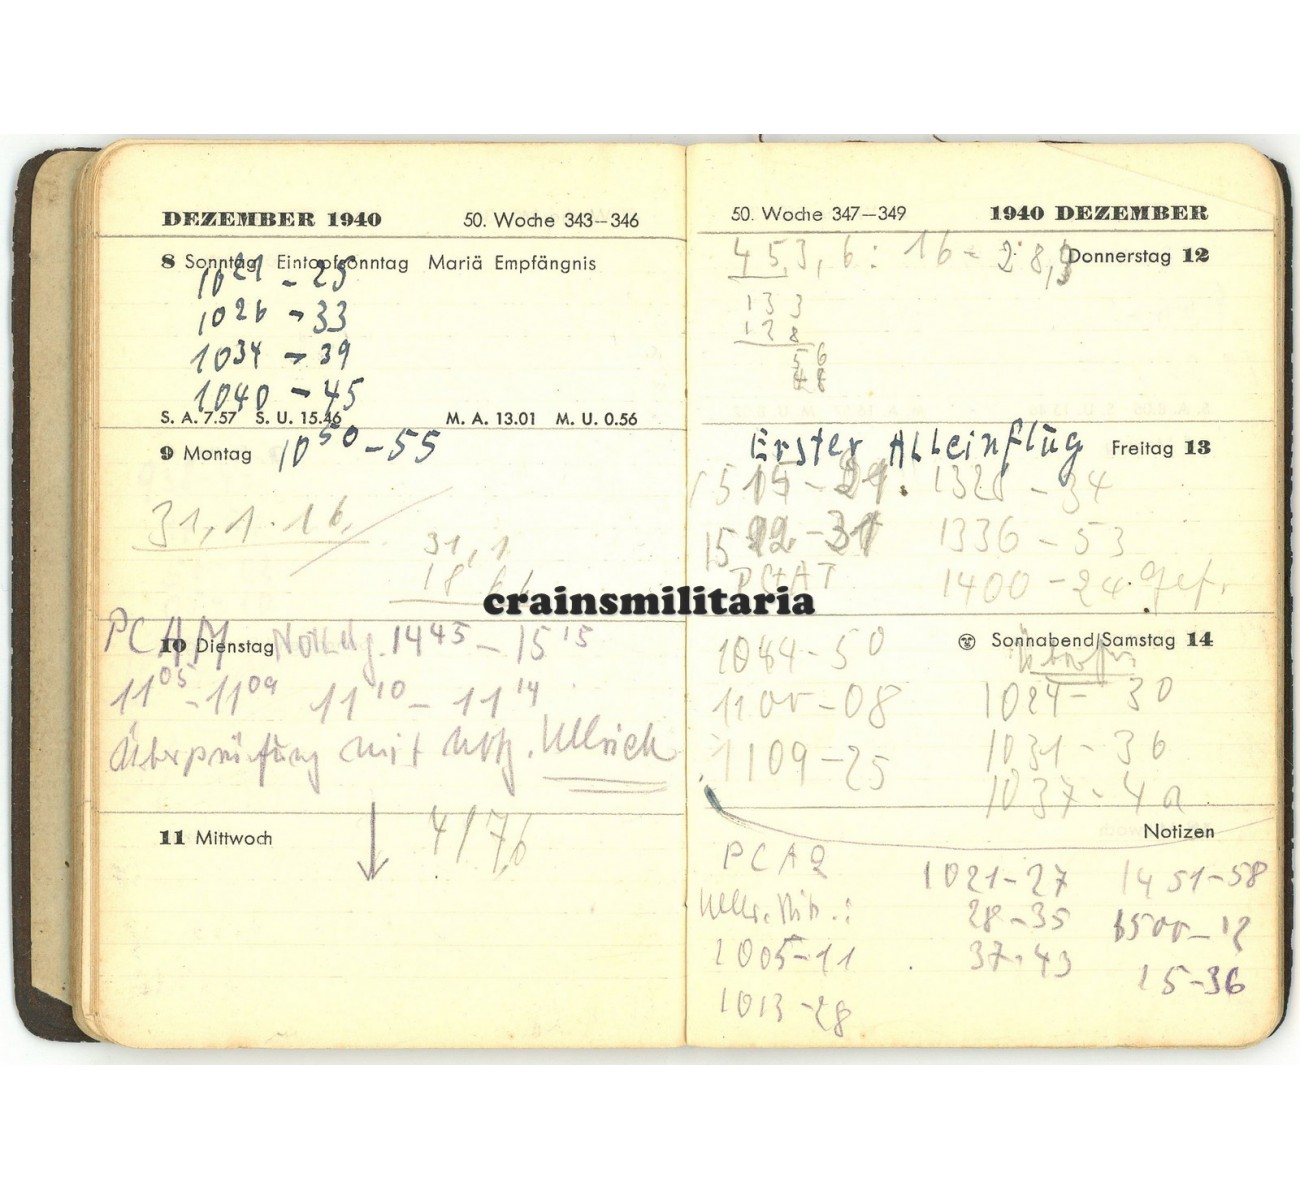 DEZEMBER 1940 50. Woche 343–346
8 Sonntag Eintopfsonntag Mariä Empfängnis
10 21 - 25
10 26 - 33
10 34 - 39
10 40 - 45
S. A. 7.57 S. U. 15.46 M. A. 13.01 M. U. 0.56
9 Montag 10 50 - 55
31,1 · 16,
31,1
18
PCAM
10 Dienstag 14 45 - 15 15
11 05 - 11 09 11 10 - 11 14
Überprüfung mit Ullrich
11 Mittwoch
50. Woche 347–349 1940 DEZEMBER
453,6 : 16 = 28,3
Donnerstag 12
133
128
56
48
Erster Alleinflug Freitag 13
1328 - 34
1336 - 53
1400 - 24 gef.
Sonnabend/Samstag 14
1044 - 50
1100 - 08 1024 - 30
1109 - 25 1031 - 36
1037 - 42
Notizen
PCAQ
1021 - 27 1451 - 58
28 - 35 1500 - 12
1005 - 11 37 - 43 15 - 36
1013 - 28
crainsmilitaria